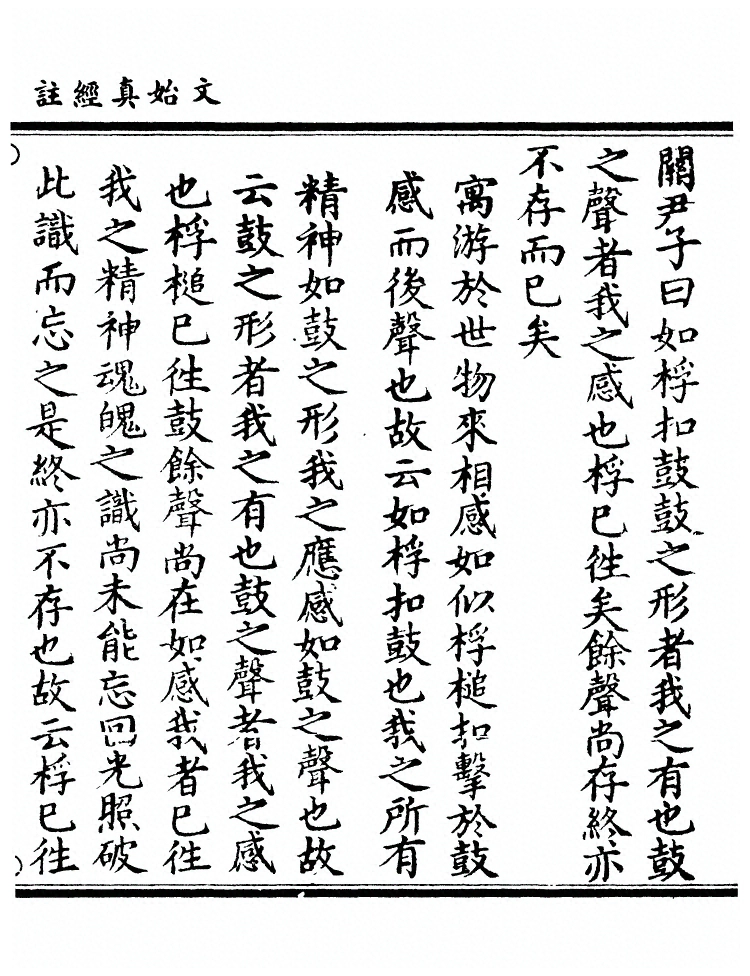 文始真經註
關尹子曰如桴扣鼓鼓之形者我之有也鼓
之聲者我之感也桴已徃矣餘聲尚存終亦
不存而已矣
寓游於世物來相感如似桴槌扣擊於鼓
感而後聲也故云如桴扣鼓也我之所有
精神如鼓之形我之應感如鼓之聲也故
云鼓之形者我之有也鼓之聲者我之感
也桴槌已徃鼓餘聲尚在如感我者已徃
我之精神魂魄之識尚未能忘回光照破
此識而忘之是終亦不存也故云桴已徃